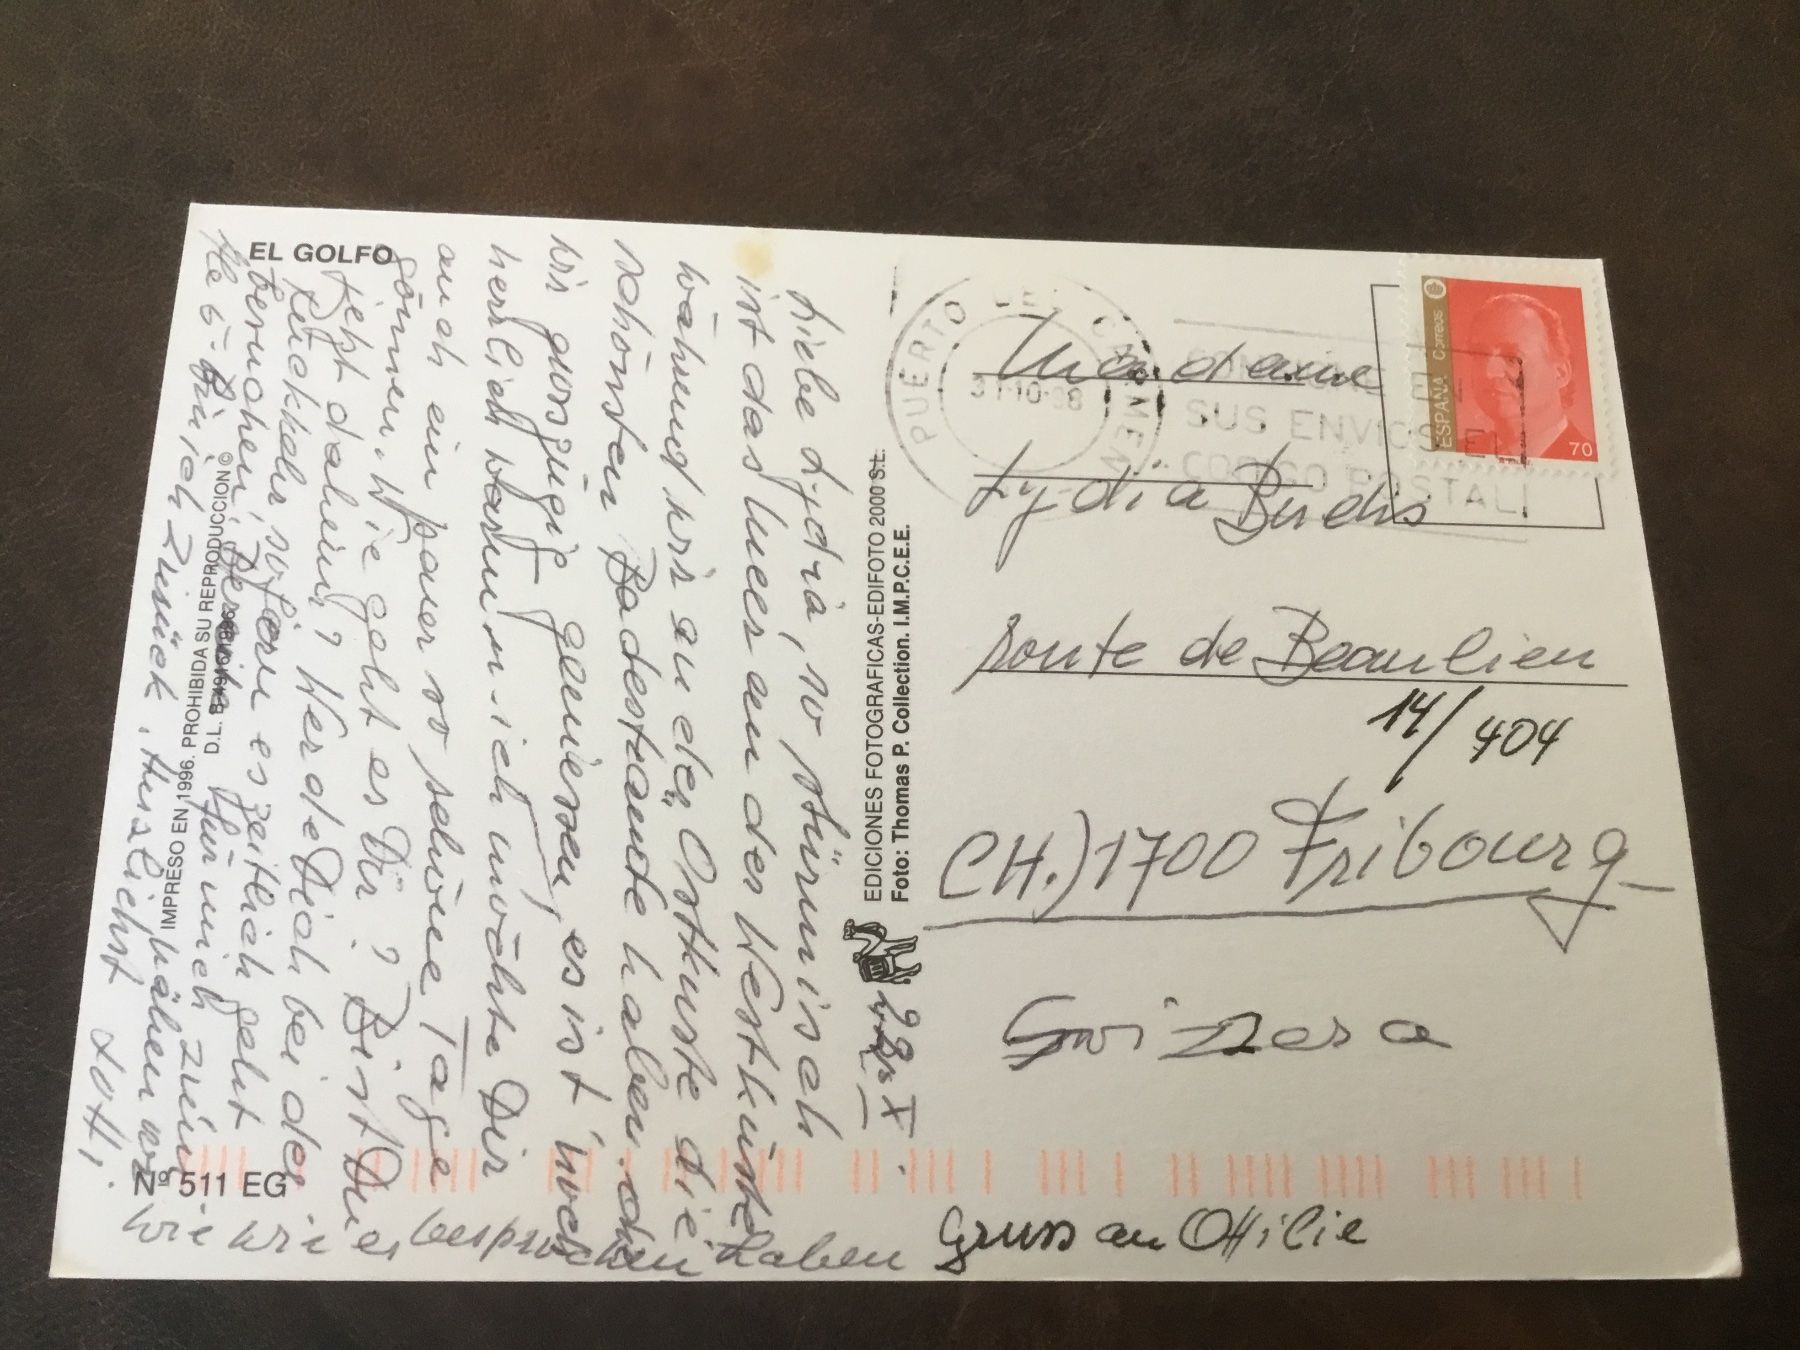 EL GOLFO
Liebe Lydia, so stürmisch
ist das Meer an der Westküste
während wir an der Ostküste die
schönsten Badestrände haben. die
wir grosszügig geniessen, es ist noch
herrlich warm u. ich möchte Dir
auch ein paar so schöne Tage
gönnen. Wie geht es Dir? Bist Du
jetzt daheim? Werde Dich bei der
Rückkehr, sofern es zeitlich geht
besuchen, für mich zum
Zürich zurück. Herzlichst Lotti
wie wir es besprochen haben
Nº 511 EG
IMPRESO EN 1996. PROHIBIDA SU REPRODUCCION ©
D.L. B
EDICIONES FOTOGRAFICAS-EDIFOTO 2000 S.L.
Foto: Thomas P. Collection. I.M.P.C.E.E.
29. X.
PUERTO DEL CARMEN
31-10-98
SUS ENVIOS EL
CODIGO POSTAL
ESPAÑA Correos
70
Madame
Lydia
Route de Beaulieu
14/404
CH.) 1700 Fribourg
Svizzera
Gruss an Ottilie